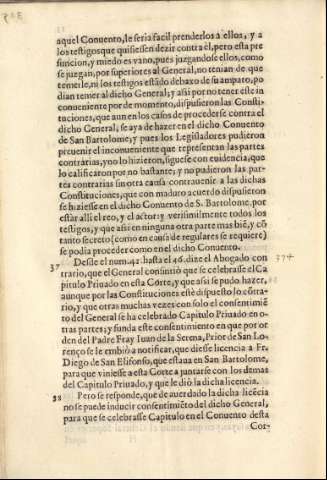 aquel Conuento, le seria facil prenderlos à ellos, y a
los testigos que quisiessen dezir contra èl, pero esta pre
suncion, y miedo es vano, pues juzgandose ellos, como
se juzgan, por superiores al General, no tenian de que
temerle, ni los testigos estãdo debaxo de su amparo, po
dian temer al dicho General; y assi por no tener este in
conueniente por de momento, dispusieron las Consti-
tuciones, que aun en los casos de procederse contra el
dicho General, se aya de hazer en el dicho Conuento
de San Bartolome, y pues los Legisladores pudieron
preuenir el inconueniente que representan las partes
contrarias, y no lo hizieron, siguese con euidencia, que
lo calificaron por no bastante, y no pudieron las par-
tes contrarias sin otra causa contrauenir a las dichas
Constituciones, que con maduro acuerdo dispusieron
se hiziesse en el dicho Conuento de S. Bartolome, por
estàr alli el reo, y el actor: y verisimilmente todos los
testigos, y que assi en ninguna otra parte mas biē, y cõ
tanto secreto (como en causa de regulares se requiere)
se podia proceder como en el dicho Conuento.
37 Desde el num. 42. hasta el 46. dize el Abogado con
trario, que el General consintiò que se celebrasse el Ca
pitulo Priuado en esta Corte, y que assi se pudo hazer,
aunque por las Constituciones estè dispuesto lo cõtra-
rio, y que otras muchas vezes con solo el consentimiē
to del General se ha celebrado Capitulo Priuado en o-
tras partes; y funda este consentimiento en que por or
den del Padre Fray Iuan de la Serena, Prior de San Lo-
renço se le embiò a notificar, que diesse licencia a Fr.
Diego de San Elifonso, que estaua en San Bartolome,
para que viniesse a esta Corte a juntarse con los demas
del Capitulo Priuado, y que le diò la dicha licencia.
38 Pero se responde, que de auer dado la dicha licēcia
no se puede inducir consentimiēto del dicho General,
para que se celebrasse Capitulo en el Conuento desta
Cor-